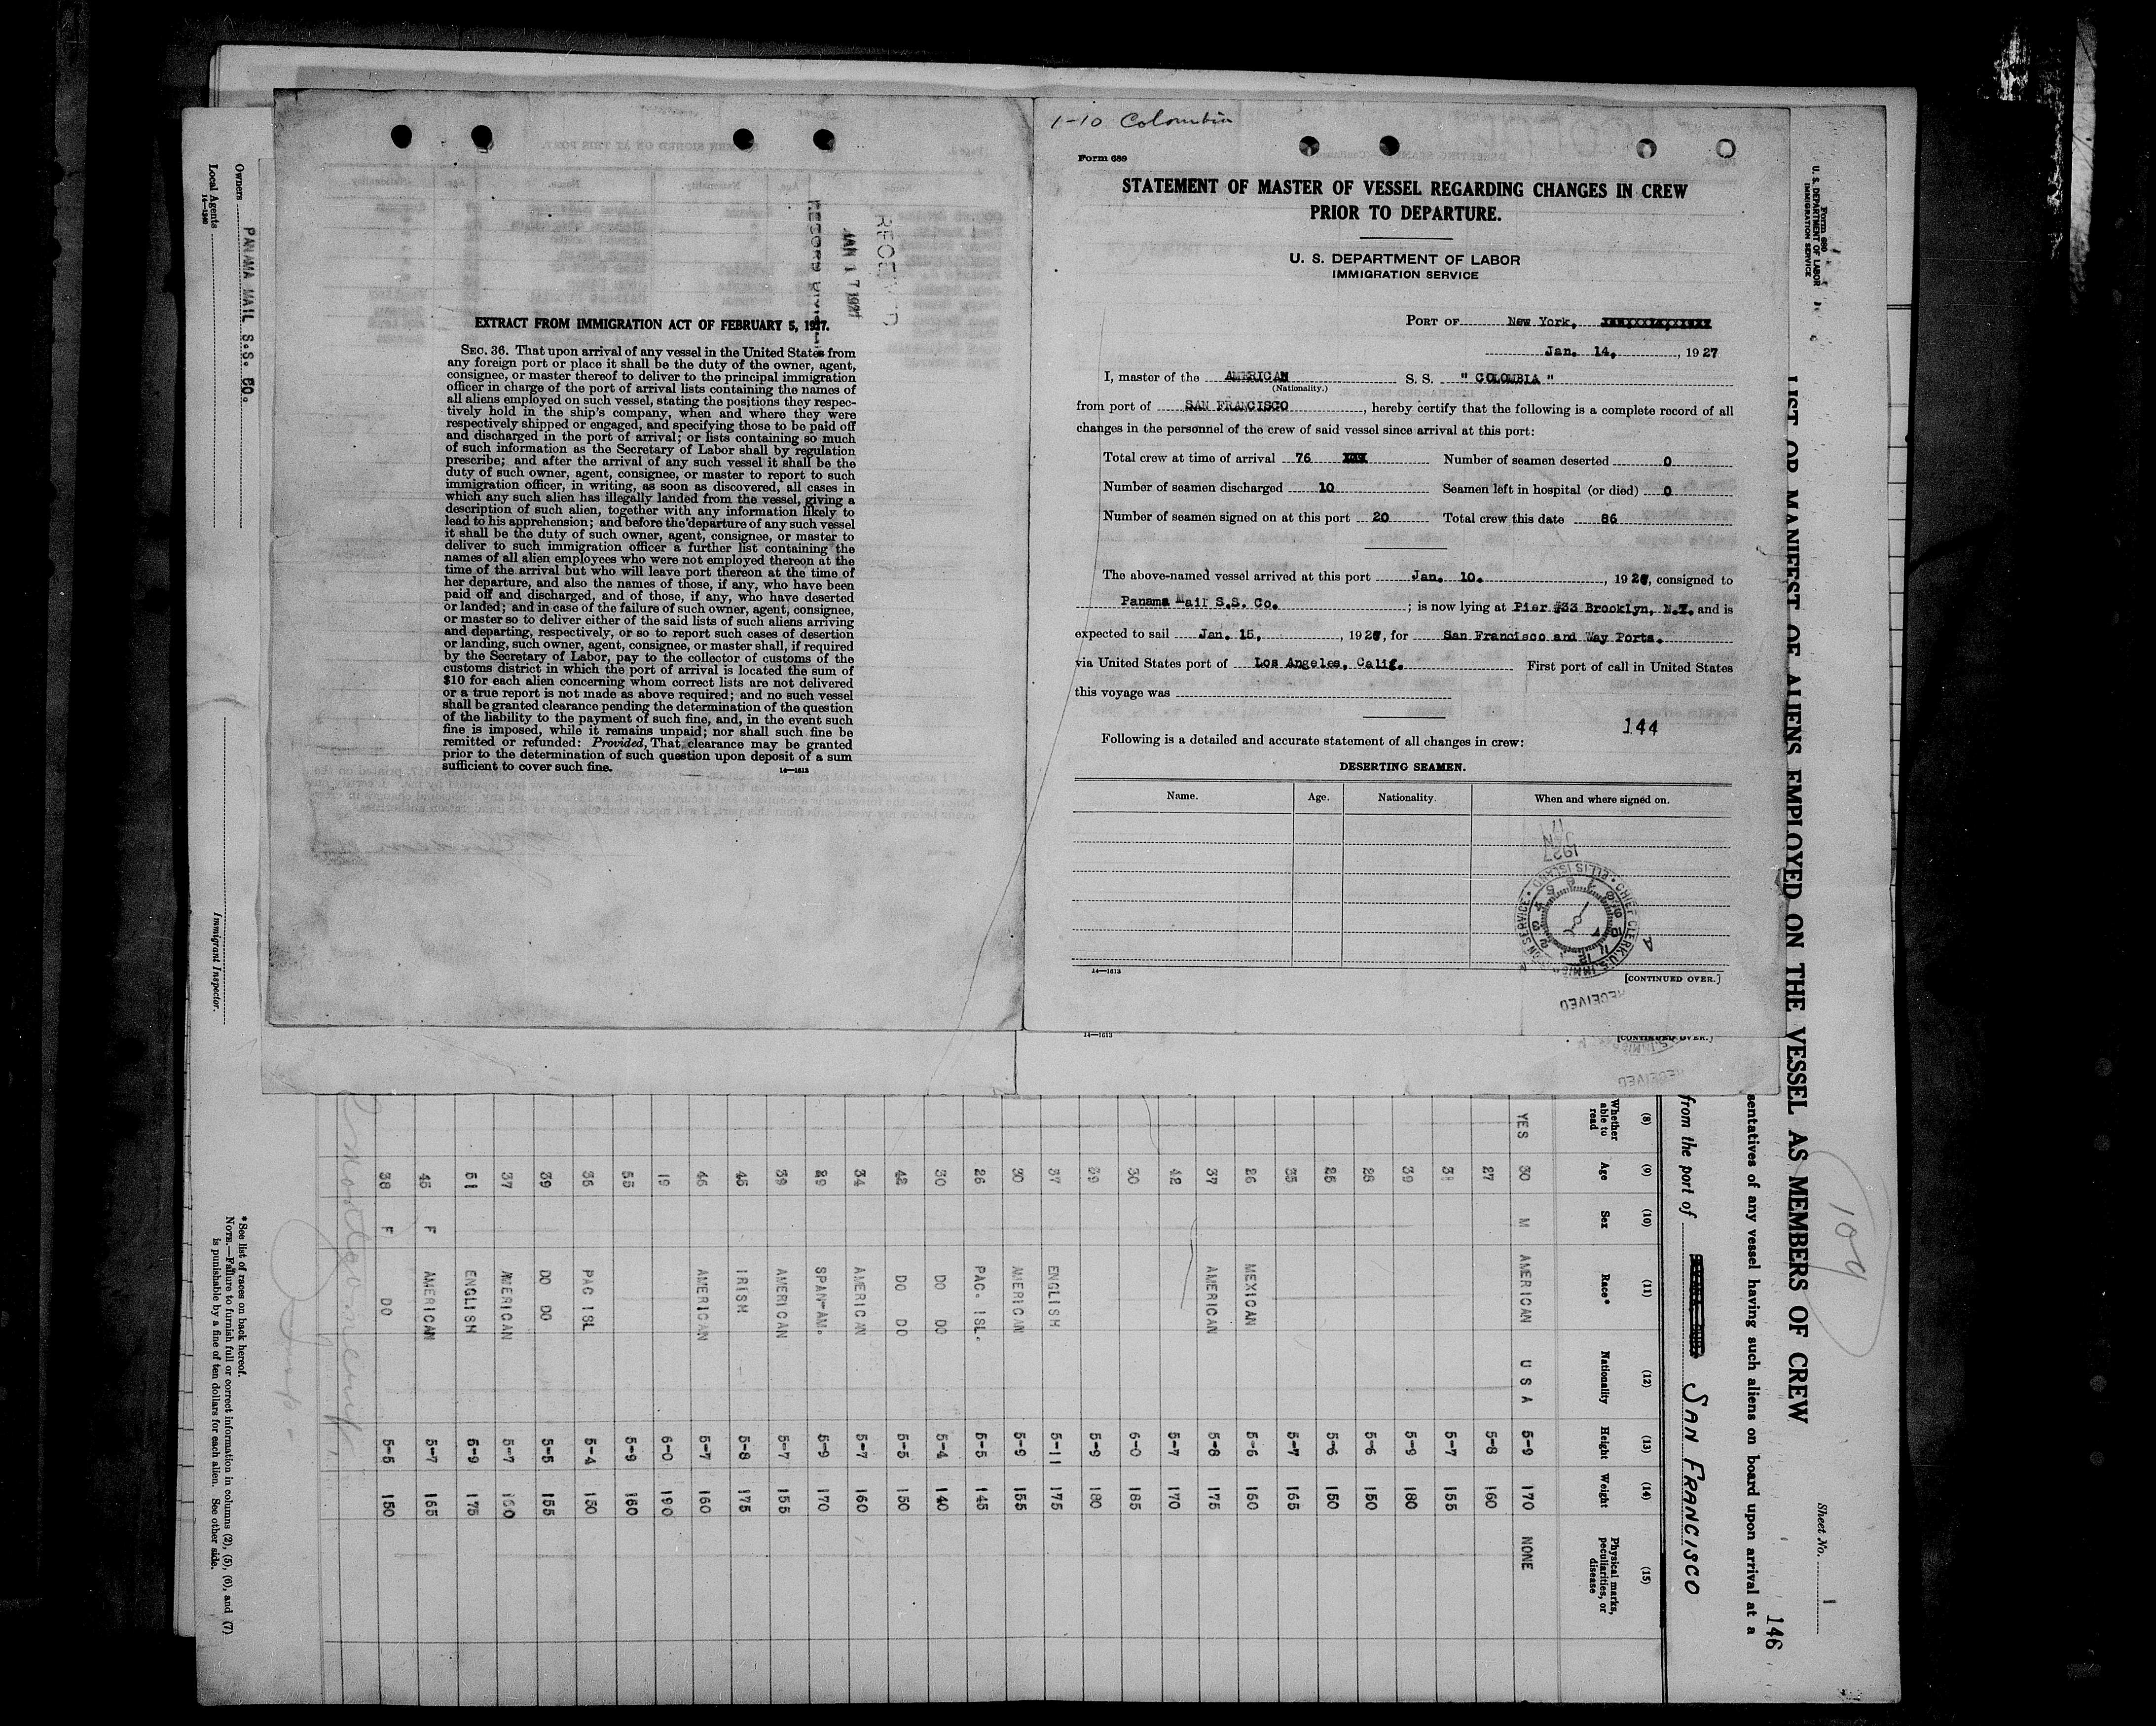 EXTRACT FROM IMMIGRATION ACT OF FEBRUARY 5, 1917.
SEC. 36. That upon arrival of any vessel in the United States from
any foreign port or place it shall be the duty of the owner, agent,
consignee, or master thereof to deliver to the principal immigration
officer in charge of the port of arrival lists containing the names of
all aliens employed on such vessel, stating the positions they respec-
tively hold in the ship's company, when and where they were
respectively shipped or engaged, and specifying those to be paid off
and discharged in the port of arrival; or lists containing so much
of such information as the Secretary of Labor shall by regulation
prescribe; and after the arrival of any such vessel it shall be the
duty of such owner, agent, consignee, or master to report to such
immigration officer, in writing, as soon as discovered, all cases in
which any such alien has illegally landed from the vessel, giving a
description of such alien, together with any information likely to
lead to his apprehension; and before the departure of any such vessel
it shall be the duty of such owner, agent, consignee, or master to
deliver to such immigration officer a further list containing the
names of all alien employees who were not employed thereon at the
time of the arrival but who will leave port thereon at the time of
her departure, and also the names of those, if any, who have been
paid off and discharged, and of those, if any, who have deserted
or landed; and in case of the failure of such owner, agent, consignee,
or master so to deliver either of the said lists of such aliens arriving
and departing, respectively, or so to report such cases of desertion
or landing, such owner, agent, consignee, or master shall, if required
by the Secretary of Labor, pay to the collector of customs of the
customs district in which the port of arrival is located the sum of
$10 for each alien concerning whom correct lists are not delivered
or a true report is not made as above required; and no such vessel
shall be granted clearance pending the determination of the question
of the liability to the payment of such fine, and, in the event such
fine is imposed, while it remains unpaid; nor shall such fine be
remitted or refunded: Provided, That clearance may be granted
prior to the determination of such question upon deposit of a sum
sufficient to cover such fine.
14—1613
RECEIVED
JAN 17 1927
RECORD
1-10 Colombia
Form 689
STATEMENT OF MASTER OF VESSEL REGARDING CHANGES IN CREW
PRIOR TO DEPARTURE.
U. S. DEPARTMENT OF LABOR
IMMIGRATION SERVICE
PORT OF New York,
Jan. 14, , 1927
I, master of the AMERICAN S. S. " COLOMBIA "
(Nationality.)
from port of SAN FRANCISCO, hereby certify that the following is a complete record of all
changes in the personnel of the crew of said vessel since arrival at this port:
Total crew at time of arrival 76 Number of seamen deserted 0
Number of seamen discharged 10 Seamen left in hospital (or died) 0
Number of seamen signed on at this port 20 Total crew this date 86
The above-named vessel arrived at this port Jan. 10. , 1927, consigned to
Panama Mail S.S. Co. ; is now lying at Pier #33 Brooklyn, N.Y. and is
expected to sail Jan. 15, , 1927, for San Francisco and Way Ports.
via United States port of Los Angeles, Calif. First port of call in United States
this voyage was
144
Following is a detailed and accurate statement of all changes in crew:
DESERTING SEAMEN.
Name. Age. Nationality. When and where signed on.
1927
JAN
17
CHIEF CLERK U.S. IMMIGRATION SERVICE • ELLIS ISLAND •
RECEIVED
14—1613
[CONTINUED OVER.]
14—1613
[CONTINUED OVER.]
RECEIVED
Form 680
U. S. DEPARTMENT OF LABOR
IMMIGRATION SERVICE
Sheet No. 1
109
146
LIST OR MANIFEST OF ALIENS EMPLOYED ON THE VESSEL AS MEMBERS OF CREW
sentatives of any vessel having such aliens on board upon arrival at a
from the port of SAN FRANCISCO
(8) (9) (10) (11) (12) (13) (14) (15)
Whether able to read Age Sex Race* Nationality Height Weight Physical marks, peculiarities, or disease
YES 30 M AMERICAN U S A 5-9 170 NONE
27 5-8 160
5-7 155
39 5-9 180
28 5-6 150
25 5-6 150
35 5-7 165
26 MEXICAN 5-6 150
37 AMERICAN 5-8 175
42 5-7 170
30 6-0 185
39 5-9 180
37 ENGLISH 5-11 175
30 AMERICAN 5-9 155
26 PAC. ISL. 5-5 145
30 DO DO 5-4 140
42 DO DO 5-5 150
34 AMERICAN 5-7 160
29 SPAN-AM. 5-9 170
39 AMERICAN 5-7 155
45 IRISH 5-8 175
46 AMERICAN 5-7 160
19 6-0 190
55 5-9 160
35 PAC ISL 5-4 150
39 DO DO 5-5 155
37 AMERICAN 5-7
51 ENGLISH 5-9 175
45 F AMERICAN 5-7 165
38 F DO 5-5 150
Owners PANAMA MAIL S.S. CO.
Local Agents
14—1240
Immigrant Inspector.
* See list of races on back hereof.
NOTE.—Failure to furnish full or correct information in columns (2), (5), (6), and (7)
is punishable by a fine of ten dollars for each alien. See other side.